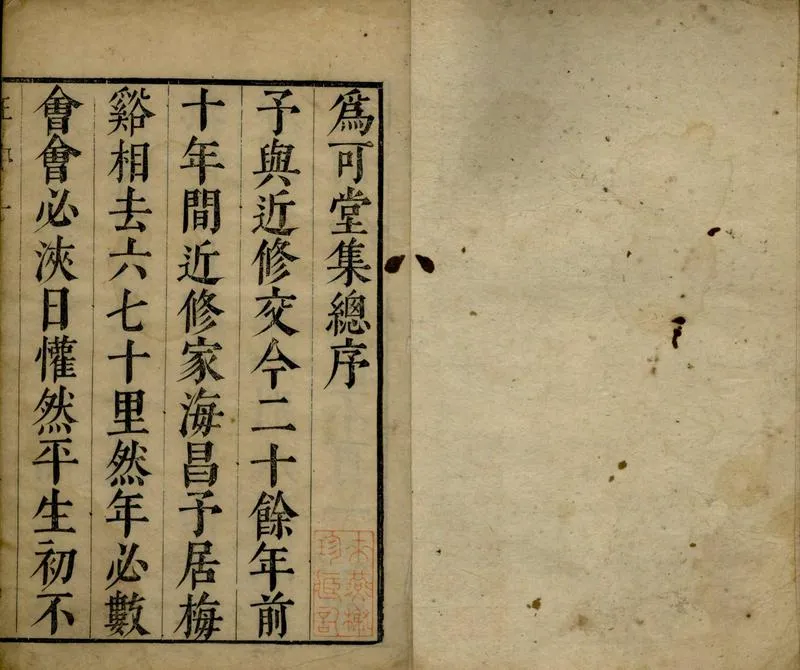 為可堂集總序
予與近修交今二十餘年前
十年間近修家海昌予居梅
谿相去六七十里然年必數
會會必浹日懽然平生初不